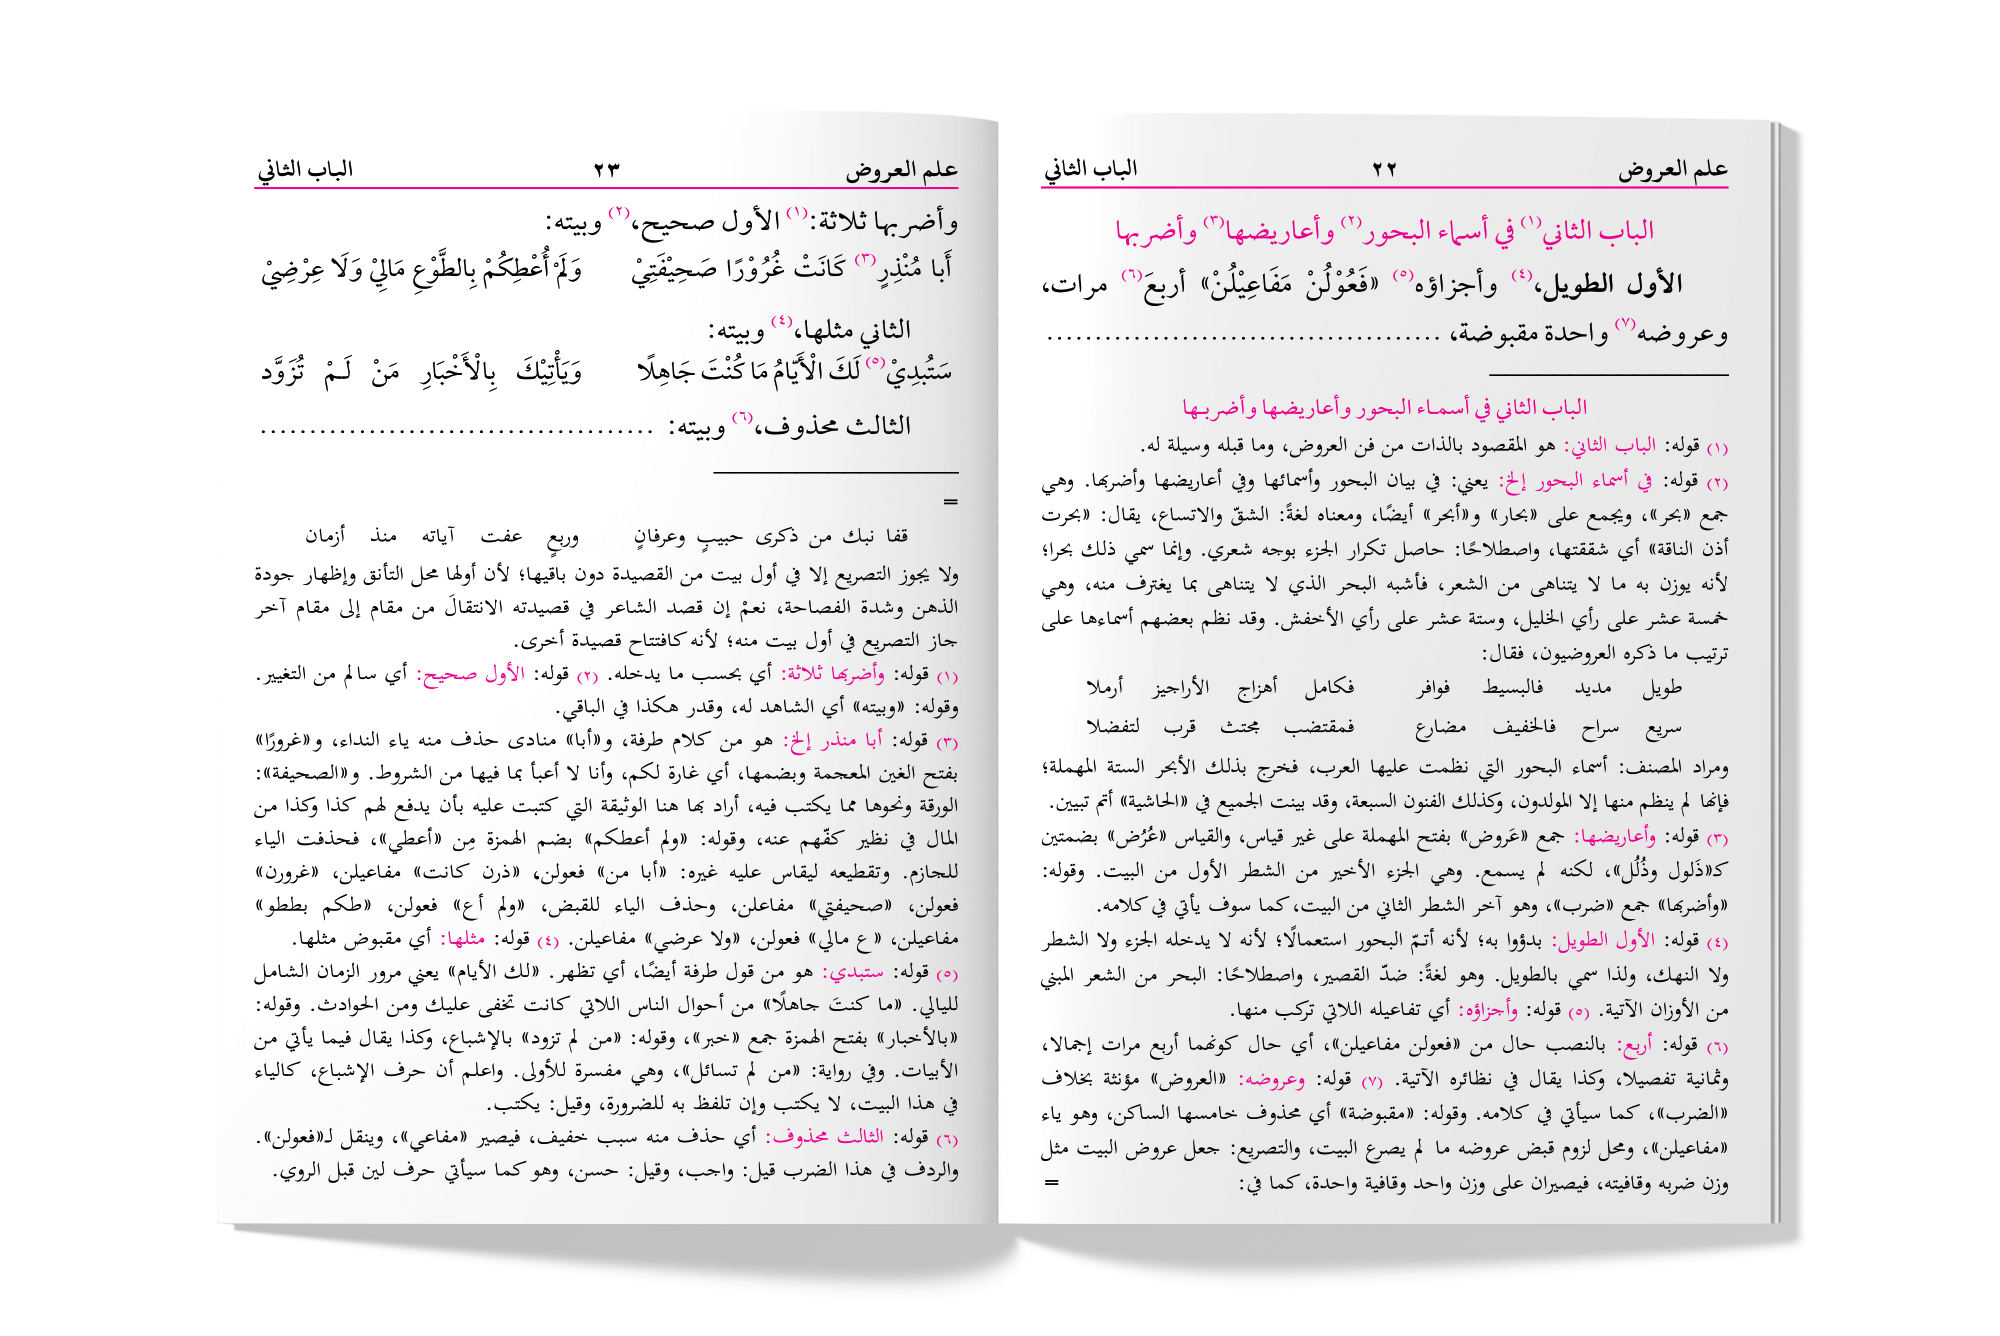 علم العروض ٢٢ الباب الثاني
الباب الثاني(١) في أسماء البحور(٢) وأعاريضها(٣) وأضربها
الأول الطويل،(٤) وأجزاؤه(٥) «فَعُوْلُنْ مَفَاعِيْلُنْ» أربعَ(٦) مرات،
وعروضه(٧) واحدة مقبوضة، ........................................
الباب الثاني في أسمـاء البحور وأعاريضها وأضربـها
(١) قوله: الباب الثاني: هو المقصود بالذات من فن العروض، وما قبله وسيلة له.
(٢) قوله: في أسماء البحور إلخ: يعني: في بيان البحور وأسمائها وفي أعاريضها وأضربها. وهي
جمع «بحر»، ويجمع على «بحار» و«أبحر» أيضًا، ومعناه لغةً: الشقّ والاتساع، يقال: «بحرت
أذن الناقة» أي شققتها، واصطلاحًا: حاصل تكرار الجزء بوجه شعري. وإنما سمي ذلك بحرا؛
لأنه يوزن به ما لا يتناهى من الشعر، فأشبه البحر الذي لا يتناهى بما يغترف منه، وهي
خمسة عشر على رأي الخليل، وستة عشر على رأي الأخفش. وقد نظم بعضهم أسماءها على
ترتيب ما ذكره العروضيون، فقال:
طويل مديد فالبسيط فوافر فكامل أهزاج الأراجيز أرملا
سريع سراح فالخفيف مضارع فمقتضب مجتث قرب لتفضلا
ومراد المصنف: أسماء البحور التي نظمت عليها العرب، فخرج بذلك الأبحر الستة المهملة؛
فإنها لم ينظم منها إلا المولدون، وكذلك الفنون السبعة، وقد بينت الجميع في «الحاشية» أتم تبيين.
(٣) قوله: وأعاريضها: جمع «عَروض» بفتح المهملة على غير قياس، والقياس «عُرُض» بضمتين
كـ«ذَلول وذُلُل»، لكنه لم يسمع. وهي الجزء الأخير من الشطر الأول من البيت. وقوله:
«وأضربها» جمع «ضرب»، وهو آخر الشطر الثاني من البيت، كما سوف يأتي في كلامه.
(٤) قوله: الأول الطويل: بدؤوا به؛ لأنه أتـمّ البحور استعمالًا؛ لأنه لا يدخله الجزء ولا الشطر
ولا النهك، ولذا سمي بالطويل. وهو لغةً: ضدّ القصير، واصطلاحًا: البحر من الشعر المبني
من الأوزان الآتية. (٥) قوله: وأجزاؤه: أي تفاعيله اللاتي تركب منها.
(٦) قوله: أربع: بالنصب حال من «فعولن مفاعيلن»، أي حال كونهما أربع مرات إجمالا،
وثمانية تفصيلا، وكذا يقال في نظائره الآتية. (٧) قوله: وعروضه: «العروض» مؤنثة بخلاف
«الضرب»، كما سيأتي في كلامه. وقوله: «مقبوضة» أي محذوف خامسها الساكن، وهو ياء
«مفاعيلن»، ومحل لزوم قبض عروضه ما لم يصرع البيت، والتصريع: جعل عروض البيت مثل
وزن ضربه وقافيته، فيصيران على وزن واحد وقافية واحدة، كما في: =
علم العروض ٢٣ الباب الثاني
وأضربها ثلاثة:(١) الأول صحيح،(٢) وبيته:
أَبا مُنْذِرٍ(٣) كَانَتْ غُرُوْرًا صَحِيْفَتِيْ وَلَمْ أُعْطِكُمْ بِالطَّوْعِ مَالِيْ وَلَا عِرْضِيْ
الثاني مثلها،(٤) وبيته:
سَتُبدِيْ(٥) لَكَ الْأَيَّامُ مَا كُنْتَ جَاهِلًا وَيَأْتِيْكَ بِالْأَخْبَارِ مَنْ لَـمْ تُزَوَّد
الثالث محذوف،(٦) وبيته: ........................................
=
قفا نبك من ذكرى حبيبٍ وعرفانٍ وربعٍ عفت آياته منذ أزمان
ولا يجوز التصريع إلا في أول بيت من القصيدة دون باقيها؛ لأن أولها محل التأنق وإظهار جودة
الذهن وشدة الفصاحة، نعمْ إن قصد الشاعر في قصيدته الانتقالَ من مقام إلى مقام آخر
جاز التصريع في أول بيت منه؛ لأنه كافتتاح قصيدة أخرى.
(١) قوله: وأضربها ثلاثة: أي بحسب ما يدخله. (٢) قوله: الأول صحيح: أي سالم من التغيير.
وقوله: «وبيته» أي الشاهد له، وقدر هكذا في الباقي.
(٣) قوله: أبا منذر إلخ: هو من كلام طرفة، و«أبا» منادى حذف منه ياء النداء، و«غرورًا»
بفتح الغين المعجمة وبضمها، أي غارة لكم، وأنا لا أعبأ بما فيها من الشروط. و«الصحيفة»:
الورقة ونحوها مما يكتب فيه، أراد بها هنا الوثيقة التي كتبت عليه بأن يدفع لهم كذا وكذا من
المال في نظير كفّهم عنه، وقوله: «ولم أعطكم» بضم الهمزة مِن «أعطي»، فحذفت الياء
للجازم. وتقطيعه ليقاس عليه غيره: «أبا من» فعولن، «ذرن كانت» مفاعيلن، «غرورن»
فعولن، «صحيفتي» مفاعلن، وحذف الياء للقبض، «ولم أع» فعولن، «طكم بططو»
مفاعيلن، «ع مالي» فعولن، «ولا عرضي» مفاعيلن. (٤) قوله: مثلها: أي مقبوض مثلها.
(٥) قوله: ستبدي: هو من قول طرفة أيضًا، أي تظهر. «لك الأيام» يعني مرور الزمان الشامل
لليالي. «ما كنتَ جاهلًا» من أحوال الناس اللاتي كانت تخفى عليك ومن الحوادث. وقوله:
«بالأخبار» بفتح الهمزة جمع «خبر»، وقوله: «من لم تزود» بالإشباع، وكذا يقال فيما يأتي من
الأبيات. وفي رواية: «من لم تسائل»، وهي مفسرة للأولى. واعلم أن حرف الإشباع، كالياء
في هذا البيت، لا يكتب وإن تلفظ به للضرورة، وقيل: يكتب.
(٦) قوله: الثالث محذوف: أي حذف منه سبب خفيف، فيصير «مفاعي»، وينقل لـ«فعولن».
والردف في هذا الضرب قيل: واجب، وقيل: حسن، وهو كما سيأتي حرف لين قبل الروي.